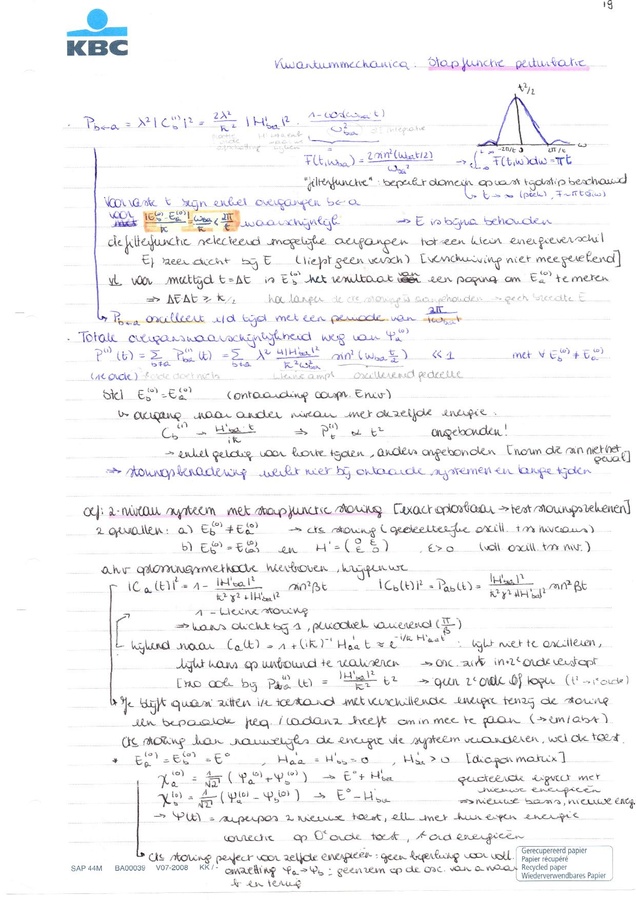 19
KBC
Kwantummechanica: Stapfunctie perturbatie
t²/2
P_{b←a} = λ² |C_b^{(1)}|² = 2λ²/ħ² |H'_{ba}|² · 1-cos(ω_{ba} t) / ω²_{ba}
F(t,ω_{ba}) = 2 sin²(ω_{ba}t/2) / ω²_{ba} → ∫ F(t,ω)dω = πt
-2π/t 2π/t ω
"filterfunctie": beperkt domein op vast tijdstip beschouwd
Voor vaste t zijn enkel overgangen b←a
voor |E_b^{(0)}-E_a^{(0)}|/ħ = ω_{ba} < 2π/t waarschijnlijk ⇒ E is bijna behouden
de filterfunctie selecteert mogelijke overgangen tot een klein energieverschil
E, zeer dicht bij E (liefst geen versch) [verschuiving niet meegerekend]
voor meettijd t=Δt is E_b^{(0)} het resultaat van een poging om E_a^{(0)} te meten
⇒ ΔE Δt ≥ ħ/2
P_{b←a} oscilleert i/d tijd met een periode van 2π/|ω_{ba}|
· Totale overgangswaarschijnlijkheid weg van Ψ_a^{(0)}
P^{(1)}(t) = Σ_{b≠a} P_{ba}^{(1)}(t) = Σ_{b≠a} λ² 4|H'_{ba}|²/ħ²ω²_{ba} sin²(ω_{ba} t/2) ≪ 1 met ∀ E_b^{(0)} ≠ E_a^{(0)}
(1e orde) kleine ampl oscillerend gedeelte
Stel E_b^{(0)} = E_a^{(0)} (ontaarding oorspr. E niv)
↳ overgang naar ander niveau met dezelfde energie:
C_b^{(1)} → H'_{ba} t / iħ ⇒ P_t^{(1)} ∝ t² ongebonden!
→ enkel geldig voor korte tijden, anders ongebonden [norm die sin net het geval]
⇒ storingsbenadering werkt niet bij ontaarde systemen en lange tijden
oef: 2-niveau systeem met stapfunctie storing [exact oplosbaar → test storingsrekenen]
2 gevallen: a) E_b^{(0)} ≠ E_a^{(0)} → cte storing (gedeeltelijke oscill. tss niveaus)
b) E_b^{(0)} = E_a^{(0)} en H' = (0 ε ε 0) , ε>0 (voll oscill. tss niv.)
ahv oplossingsmethode hierboven, krijgen we
|C_a(t)|² = 1 - |H'_{ba}|²/ħ²γ²+|H'_{ba}|² sin²βt |C_b(t)|² = P_{ab}(t) = |H'_{ba}|²/ħ²γ²+|H'_{ba}|² sin²βt
1 - kleine storing
⇒ kans dicht bij 1, periodiek variërend (π/β)
kijkend naar C_a(t) = 1 + (iħ)^{-1} H'_{aa} t ≈ e^{-i/ħ H'_{aa} t} : lijkt niet te oscilleren,
lijkt kans op unbound te realiseren → osc. zit in 2e orde verstopt
[zo ook bij P_{ba}^{(1)}(t) = |H'_{ba}|²/ħ² t² → geen 2e orde of hoger]
↳ Je blijft quasi zitten i/e toestand met verschillende energie tenzij de storing
een bepaalde freq. / cadanz heeft om in mee te gaan (→ em/abs).
Cte storing kan nauwelijks de energie v/e systeem veranderen, wel de toest.
* E_a^{(0)} = E_b^{(0)} = E⁰ , H'_{aa} = H'_{bb} = 0 , H'_{ba} > 0
χ_a^{(0)} = 1/√2 (Ψ_a^{(0)} + Ψ_b^{(0)}) → E⁰ + H'_{ba} gestoorde eigenvect met nieuwe energieën
χ_b^{(0)} = 1/√2 (Ψ_a^{(0)} - Ψ_b^{(0)}) → E⁰ - H'_{ba} ⇒ nieuwe basis, nieuwe energ
→ Ψ(t) = superpos 2 nieuwe toest, elk met hun eigen energie
correctie op 0e orde toest, 1e ord energieën
↳ Cte storing perfect voor zelfde energieën: geen beperking voor voll
omzetting Ψ_a → Ψ_b : geen rem op de osc. van a naar
b en terug
SAP 44M BA00039 V07-2008 KK / -
Gerecupereerd papier
Papier récupéré
Recycled paper
Wiederverwendbares Papier